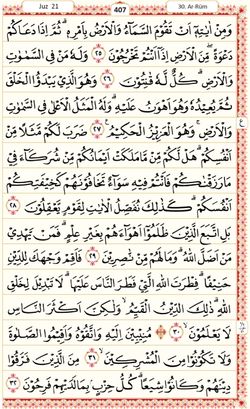 Juz 21
407
30. Ar-Rūm
وَمِنْ اٰيٰتِهٖٓ اَنْ تَقُوْمَ السَّمَآءُ وَالْاَرْضُ بِاَمْرِهٖۗ ثُمَّ اِذَا دَعَاكُمْ
دَعْوَةً مِّنَ الْاَرْضِ اِذَآ اَنْتُمْ تَخْرُجُوْنَ ٢٥ وَلَهٗ مَنْ فِى السَّمٰوٰتِ
وَالْاَرْضِۗ كُلٌّ لَّهٗ قٰنِتُوْنَ ٢٦ وَهُوَ الَّذِيْ يَبْدَؤُا الْخَلْقَ
ثُمَّ يُعِيْدُهٗ وَهُوَ اَهْوَنُ عَلَيْهِۗ وَلَهُ الْمَثَلُ الْاَعْلٰى فِى السَّمٰوٰتِ
وَالْاَرْضِۚ وَهُوَ الْعَزِيْزُ الْحَكِيْمُ ٢٧ ضَرَبَ لَكُمْ مَّثَلًا مِّنْ
اَنْفُسِكُمْۗ هَلْ لَّكُمْ مِّنْ مَّا مَلَكَتْ اَيْمَانُكُمْ مِّنْ شُرَكَآءَ فِيْ
مَا رَزَقْنٰكُمْ فَاَنْتُمْ فِيْهِ سَوَآءٌ تَخَافُوْنَهُمْ كَخِيْفَتِكُمْ
اَنْفُسَكُمْۗ كَذٰلِكَ نُفَصِّلُ الْاٰيٰتِ لِقَوْمٍ يَّعْقِلُوْنَ ٢٨
بَلِ اتَّبَعَ الَّذِيْنَ ظَلَمُوْٓا اَهْوَآءَهُمْ بِغَيْرِ عِلْمٍۗ فَمَنْ يَّهْدِيْ
مَنْ اَضَلَّ اللّٰهُۗ وَمَا لَهُمْ مِّنْ نّٰصِرِيْنَ ٢٩ فَاَقِمْ وَجْهَكَ لِلدِّيْنِ
حَنِيْفًاۗ فِطْرَتَ اللّٰهِ الَّتِيْ فَطَرَ النَّاسَ عَلَيْهَاۗ لَا تَبْدِيْلَ لِخَلْقِ
اللّٰهِۗ ذٰلِكَ الدِّيْنُ الْقَيِّمُۙ وَلٰكِنَّ اَكْثَرَ النَّاسِ
لَا يَعْلَمُوْنَۙ ٣٠ مُنِيْبِيْنَ اِلَيْهِ وَاتَّقُوْهُ وَاَقِيْمُوا الصَّلٰوةَ
وَلَا تَكُوْنُوْا مِنَ الْمُشْرِكِيْنَۙ ٣١ مِنَ الَّذِيْنَ فَرَّقُوْا
دِيْنَهُمْ وَكَانُوْا شِيَعًاۗ كُلُّ حِزْبٍۢ بِمَا لَدَيْهِمْ فَرِحُوْنَ ٣٢